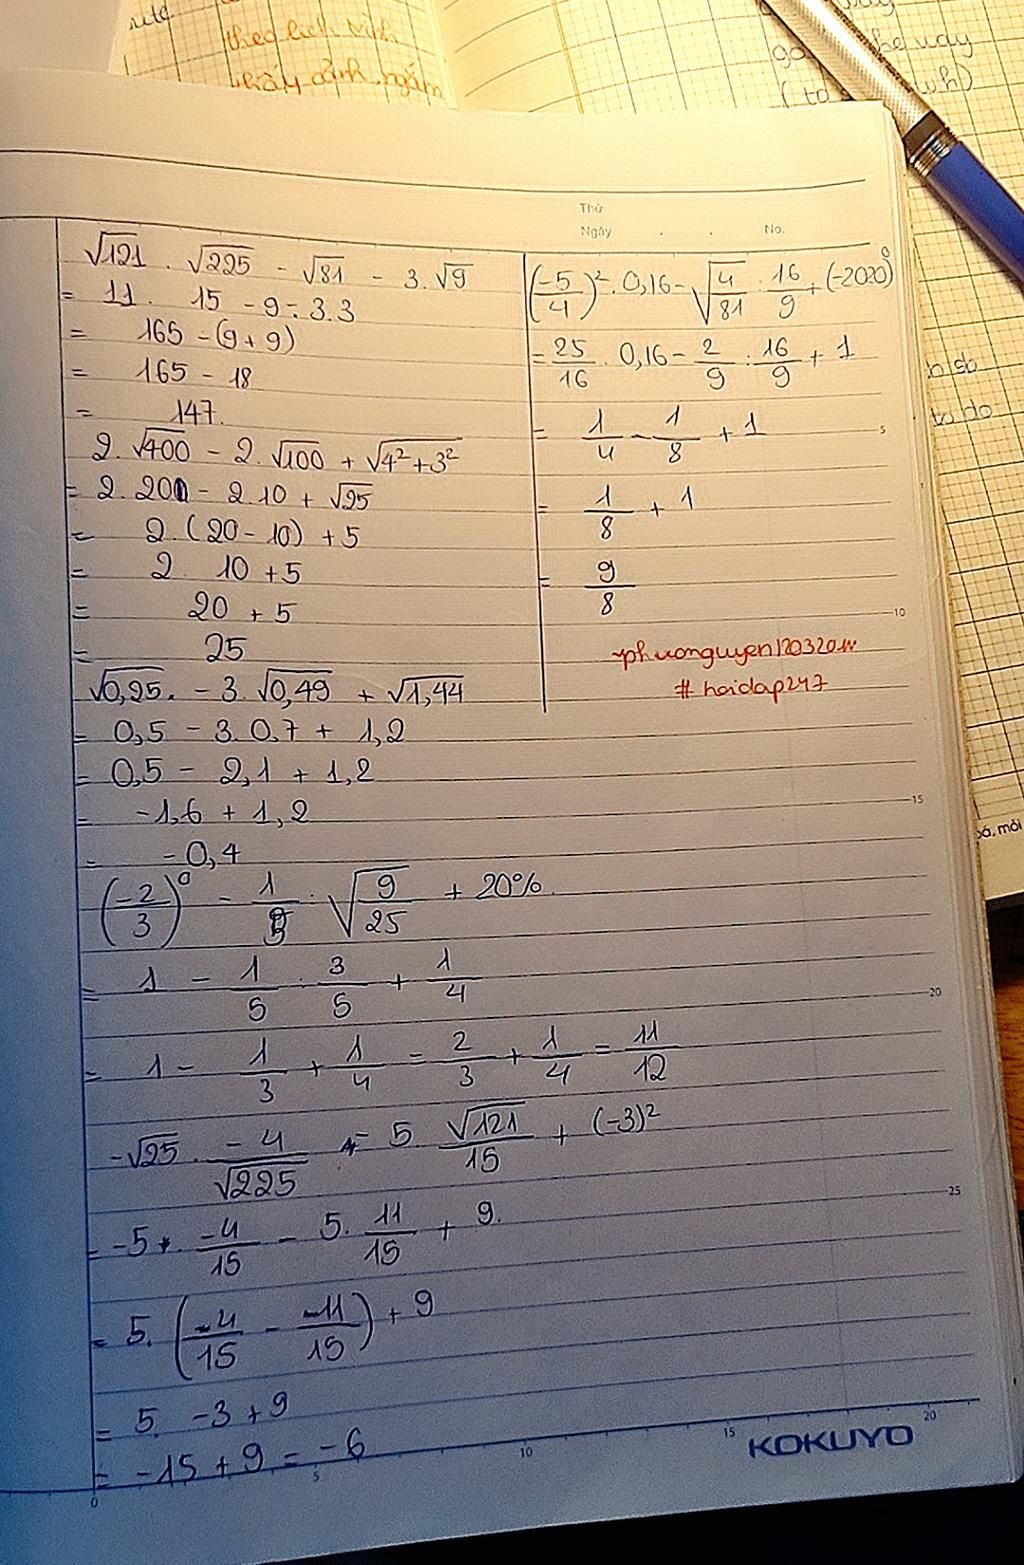 theo lịch trình
Thứ
Ngày . . No.
√121 . √225 - √81 - 3.√9
= 11 . 15 - 9 - 3.3
= 165 - (9 + 9)
= 165 - 18
= 147.
2.√400 - 2.√100 + √4²+3²
= 2.20 - 2.10 + √25
= 2.(20 - 10) + 5
= 2 . 10 + 5
= 20 + 5
= 25
√0,25. - 3.√0,49 + √1,44
= 0,5 - 3.0,7 + 1,2
= 0,5 - 2,1 + 1,2
= -1,6 + 1,2
= -0,4
(-2/3)⁰ - 1/5 : √9/25 + 20%.
= 1 - 1/5 : 3/5 + 1/4
= 1 - 1/3 + 1/4 = 2/3 + 1/4 = 11/12
-√25 . -4/√225 - 5 . √121/15 + (-3)²
= -5 . -4/15 - 5. 11/15 + 9.
= 5. (-4/15 - -11/15) + 9
= 5. -3 + 9
= -15 + 9 = -6
(-5/4)² . 0,16 - √4/81 : 16/9 + (-2020)⁰
= 25/16 . 0,16 - 2/9 : 16/9 + 1
= 1/4 - 1/8 + 1
= 1/8 + 1
= 9/8
# hoidap247
5
10
15
20
25
to do
0 5 10 15 20
KOKUYO